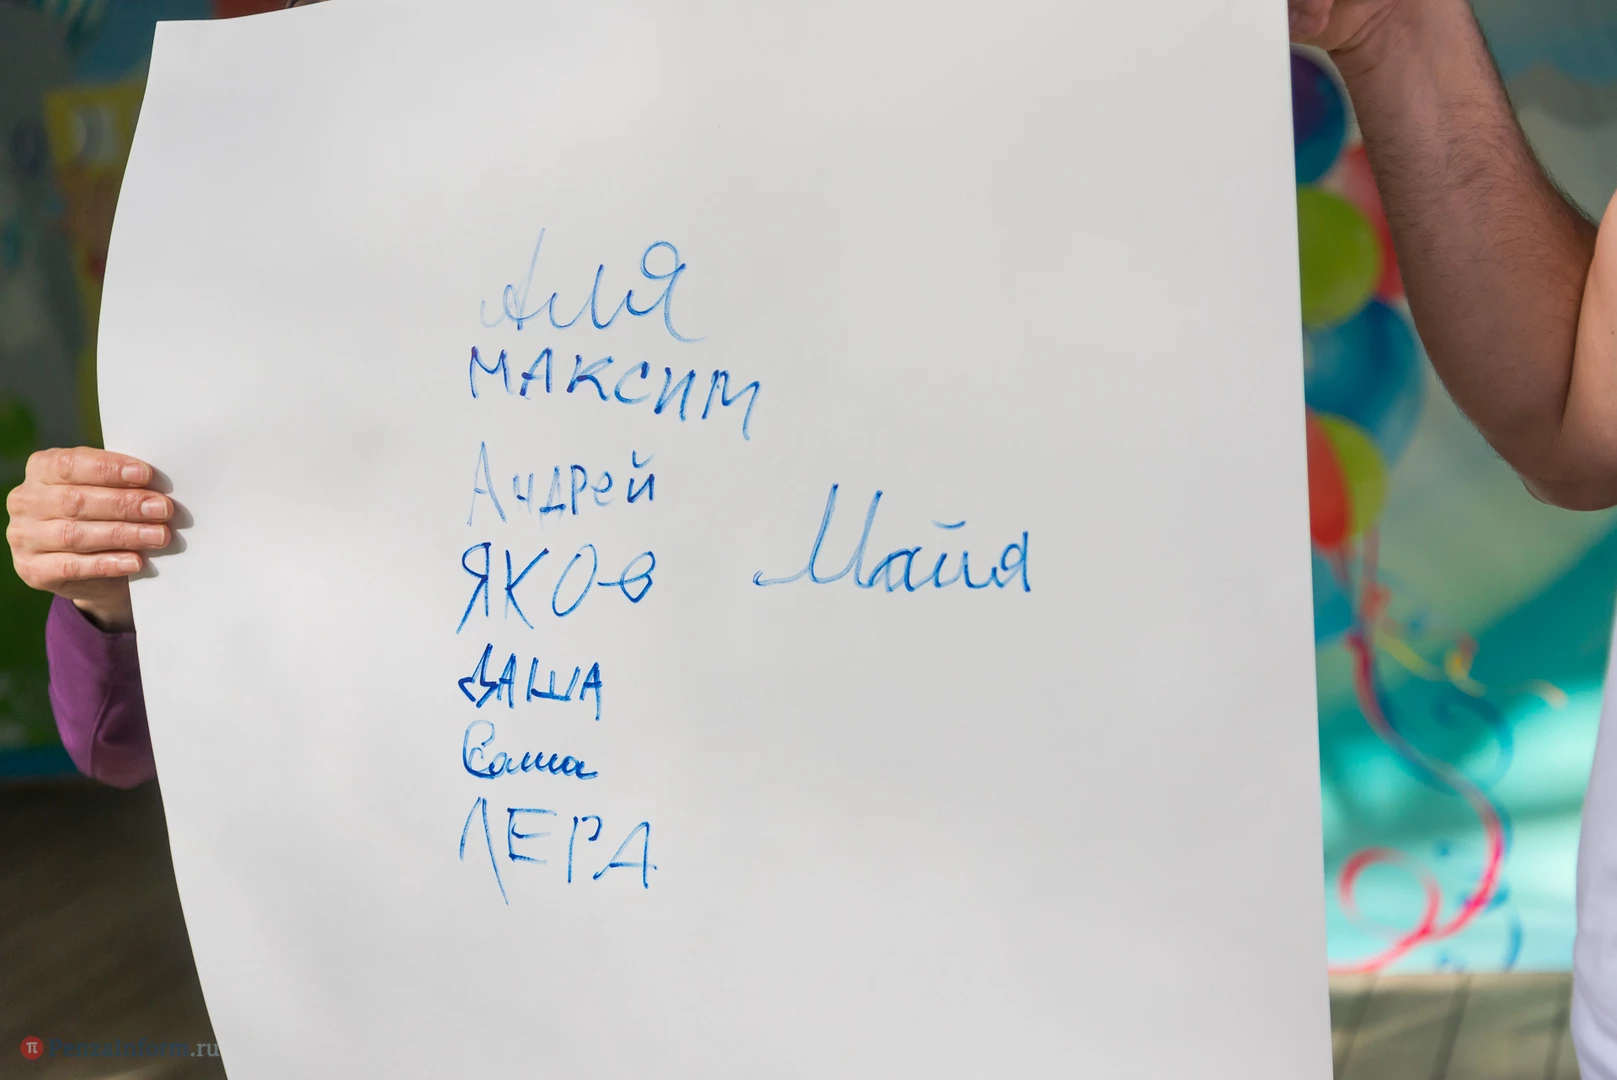 Аля
МАКСИМ
Андрей
ЯКОв Майя
ДАША
Саша
ЛЕРА
PenzaInform.ru